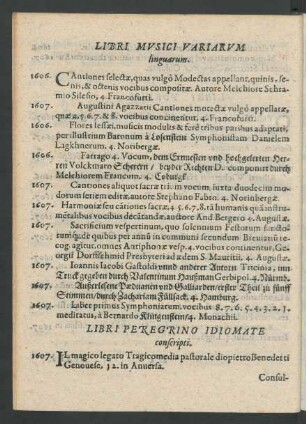 LIBRI MVSICI VARIARVM
linguarum.
1606. CAntiones selectæ, quas vulgò Modestas appellant, quinis, se-
nis, & octenis vocibus compositæ. Autore Melchiore Schra-
mio Silesio, 4. Francofurti.
1607. Augustini Agazzaris Cantiones motectæ vulgò appellatæ,
quæ 4. 5. 6. 7. & 8. vocibus concinuntur. 4. Francofurti.
1606. Flores Iessæi, musicis modulis & ferè tribus partibus adaptati,
per illustrium Baronum à Löfenstein Symphonistam Danielem
Lagkhnerum. 4. Noribergæ.
1606. Farrago 4. Vocum, dem Ernuesten vnd hochgelerten Her-
ren Volckmaro Scherern / beyder Rechten D. componirt durch
Melchiorem Francum. 4. Coburgk
1607. Cantiones aliquot sacræ trium vocum iuxta duodecim mo-
dorum seriem editæ autore Stephano Fuben. 4. Norinbergæ.
1607. Harmoniæ seu cationes sacræ, 4 5. 6. 7. 8. tã humanis quã instru-
mẽtalibus vocibus decãtandæ autore And Bergero 4. Augustæ.
1607. Sacrificium vespertinum, quo solennium Festorum
quibus per annũ in communi secundum Breuiariũ re-
cog. agitur. omnes Antiphonæ vesp. 4. vocibus continentur. Ge-
orgii Dorffschmid Presbyteri ad ædem S. Mauritii, 4. Augustæ.
1607. Ioannis Iacobi Gastoldi vnnd anderer Autorn Tricinia, inn
Truck gegeben durch Valentinum Haußman Gerbipol. 4. Nürmb.
1607. Außerlesene Paduanen vnd Galliarden / erster Theil zu fünff
Stimmen / durch Zachariam Füllsack. 4. Hamburg.
1607. Liber primus Symphoniarum, vocibus 8. 7. 6. 5. 4. 3. 2. 1.
meditatus, à Bernardo Klingenstein / 4. Monachii.
LIBRI PEREGRINO IDIOMATE
conscripti.
1607. IL magico legato Tragicomedia pastorale di opietto Benedetti
Genouese, 12. in Anuersa.
Consul-